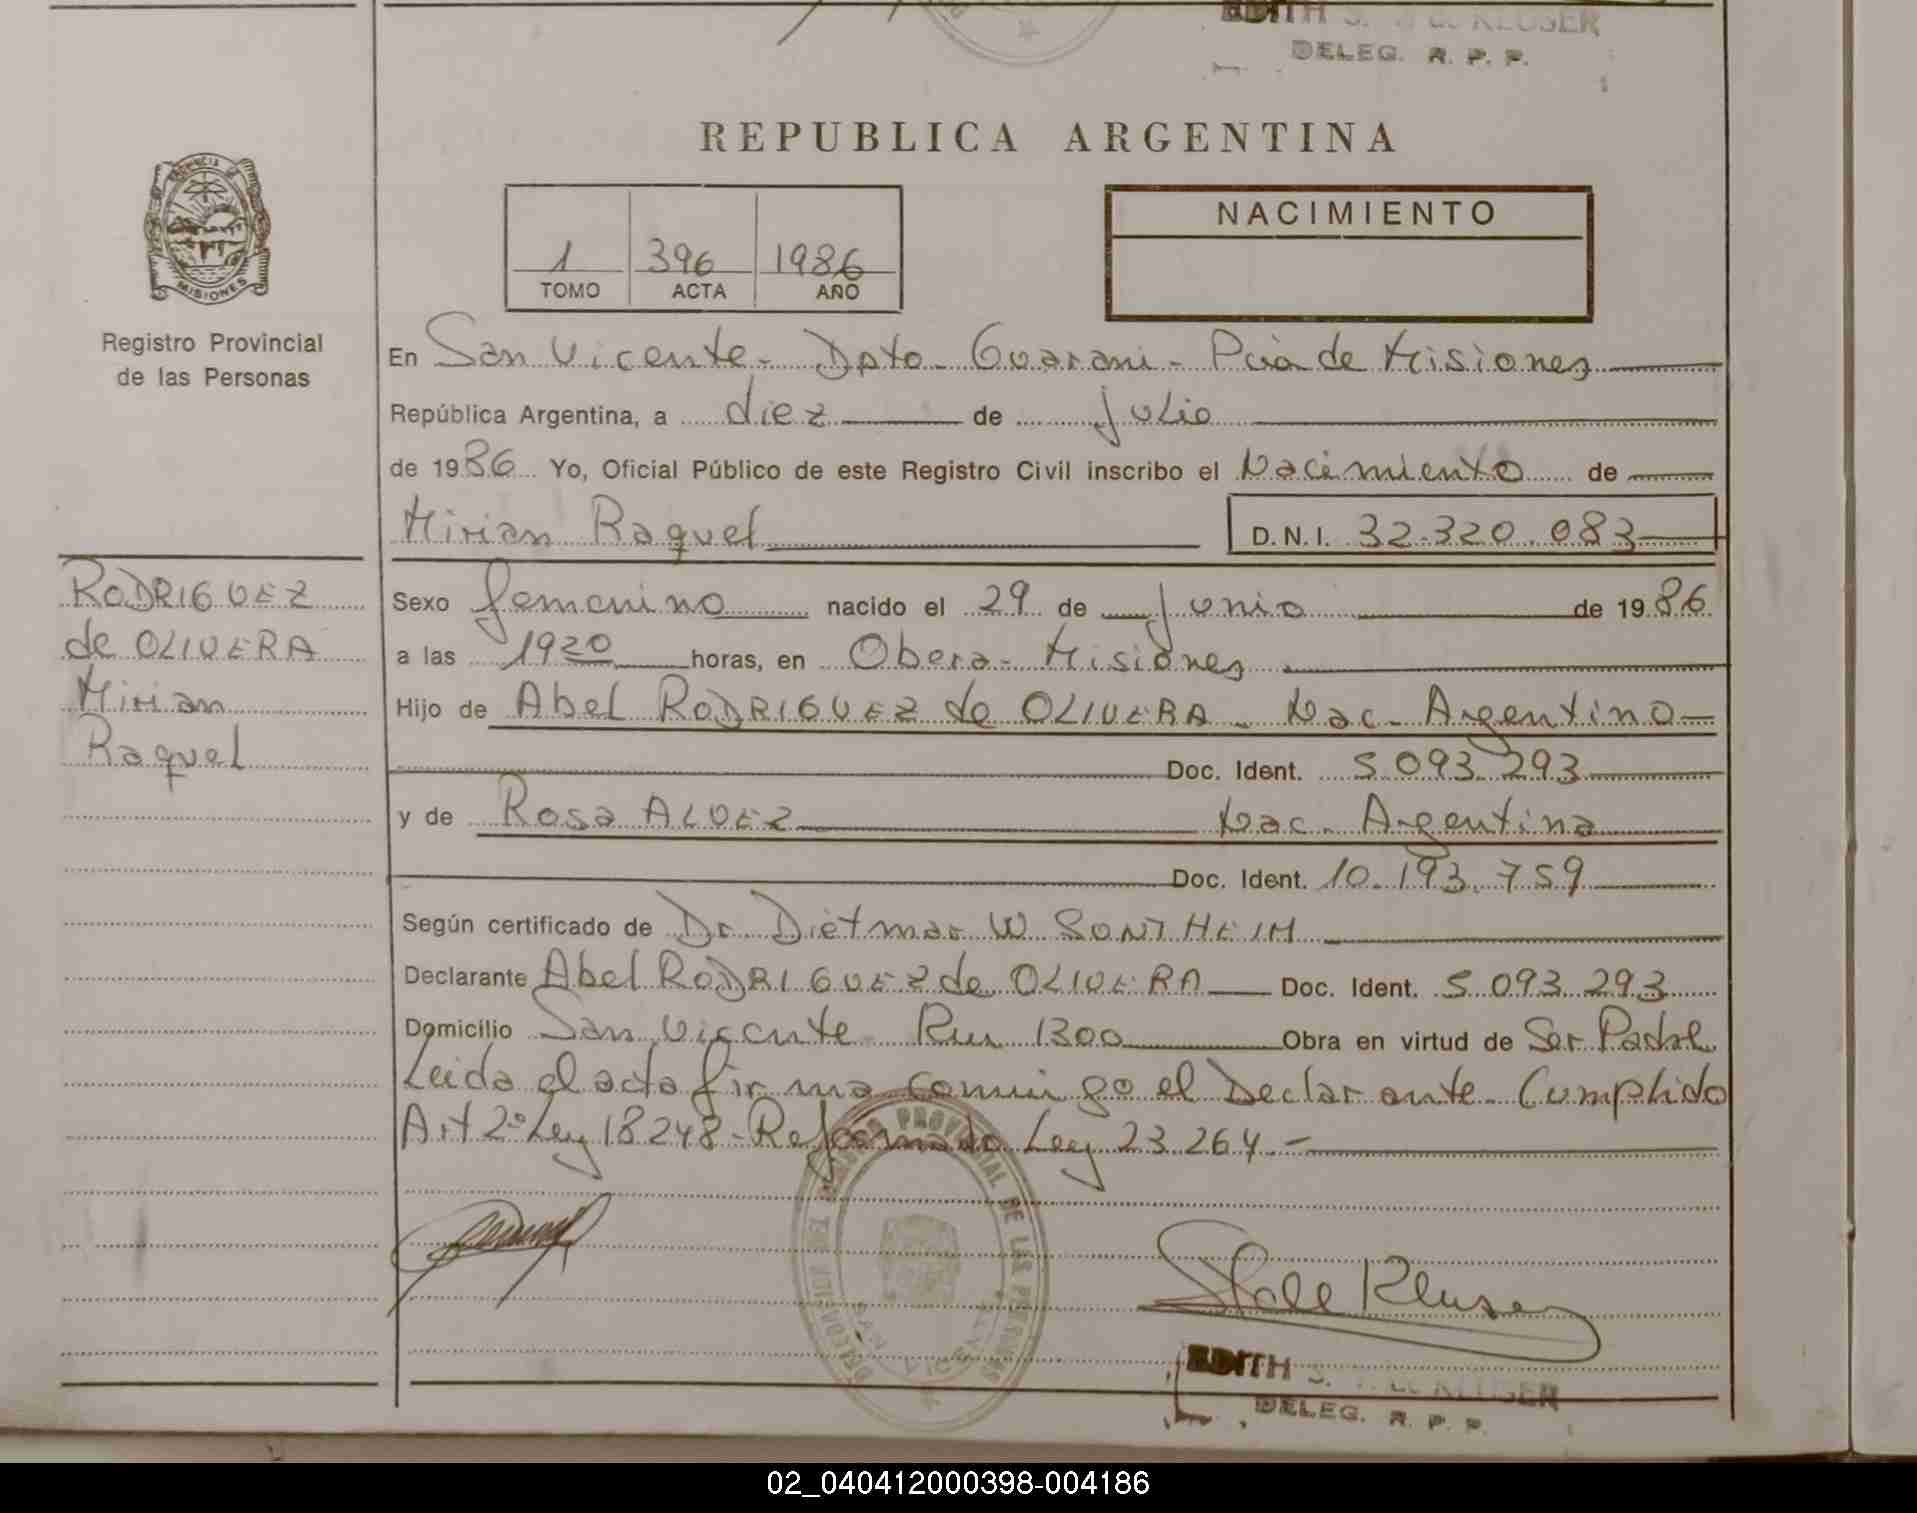 EDITH S. KLUSER
DELEG. R. P. P.
REPUBLICA ARGENTINA
PROVINCIA DE
MISIONES
Registro Provincial
de las Personas
1 396 1986
TOMO ACTA AÑO
NACIMIENTO
En San Vicente - Dpto - Guarani - Pcia de Misiones
República Argentina, a diez de julio
de 1986 Yo, Oficial Público de este Registro Civil inscribo el Nacimiento de
Mirian Raquel D.N.I. 32.320.083
RODRIGUEZ
de OLIVERA
Mirian
Raquel
Sexo femenino nacido el 29 de junio de 1986
a las 1920 horas, en Obera - Misiones
Hijo de Abel RODRIGUEZ de OLIVERA - Nac - Argentino
Doc. Ident. 5.093.293
y de Rosa ALVEZ Nac - Argentina
Doc. Ident. 10.193.759
Según certificado de Dr Dietmar W SONTHEIM
Declarante Abel RODRIGUEZ de OLIVERA Doc. Ident. 5.093.293
Domicilio San Vicente - Km 1300 Obra en virtud de Ser Padre
Leida el acta firma conmigo el Declarante - Cumplido
Art 2º Ley 18248 - Reformado Ley 23.264 -
REGISTRO PROVINCIAL DE LAS PERSONAS
Kluser
EDITH S. KLUSER
DELEG. R. P. P.
02_040412000398-004186